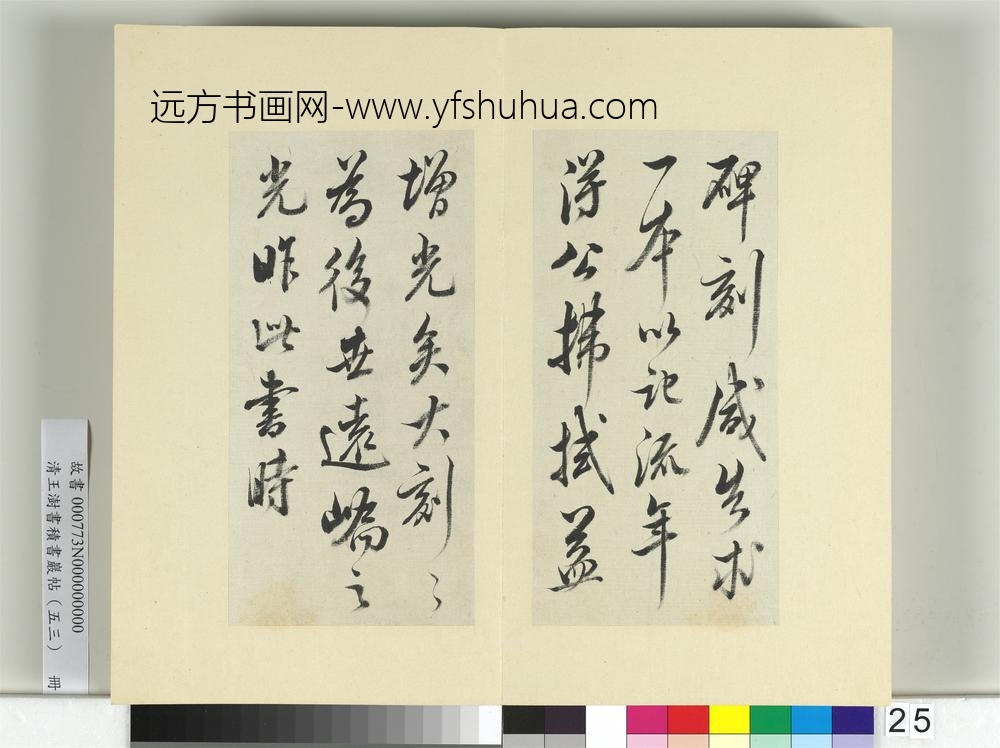 远方书画网-www.yfshuhua.com
碑刻咸告求
一本以記流年
得公拂拭益
增光矣大刻〻
為後世遠嶠之
光昨此書時
故書 000773N000000000
清王澍書積書巖帖（五三） 冊
25